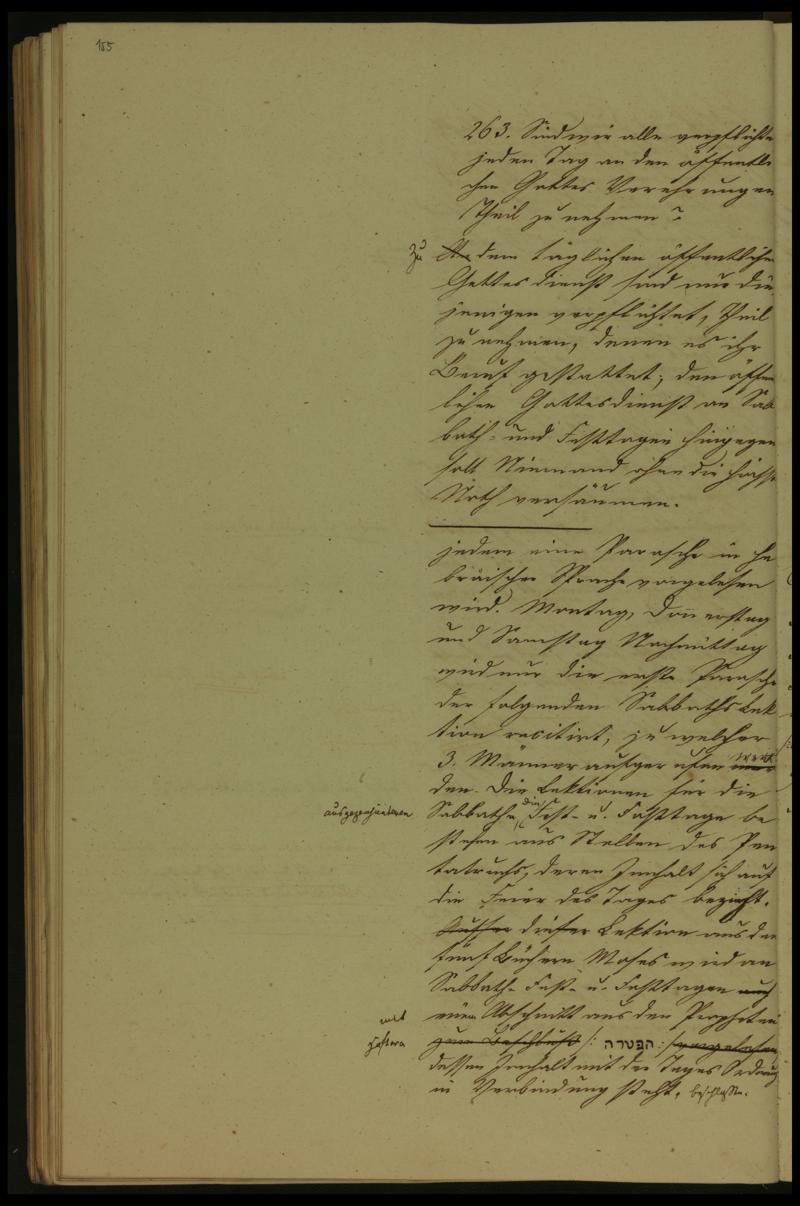 155
263. Sind wir alle verpflichte
jeden Tag an den öffentli
chen Gottes Verehrungen
Theil zu nehmen?
zu An dem täglichen öffentliche
Gottesdienst sind nur die
jenigen verpflichtet, Theil
zu nehmen, denen es ihr
Beruf gestattet; den öffen
lichen Gottesdienst an Sab
bath- und Festtagen hingegen
soll Niemand ohne die höchst
Noth versäumen.
jedem eine Parasche in he
bräischer Sprache vorgelesen
wird. Montag, Donnerstag
und Samstag Nachmittag
wird nur die erste Parasche
der folgenden Sabbaths Lek
tion recitirt, zu welcher
3. Männer aufgerufen wer
den. Die Lektionen für die
Sabbathe, die Fest- u. Fasttage be
stehen aus Stellen des Pen
tateuchs, deren Innhalt sich auf
die Feier des Tages bezieht.
Ausser dieser Lektion aus den
fünf Büchern Moses wird an
Sabbath- Fest- u. Fasttagen auch
mit einem Abschnitt aus den Propheten
Haftera zum Beschluss /: הפטרה :/ vorgelesen
dessen Innhalt mit der Tages Ordnung
in Verbindung steht, beschlossen.